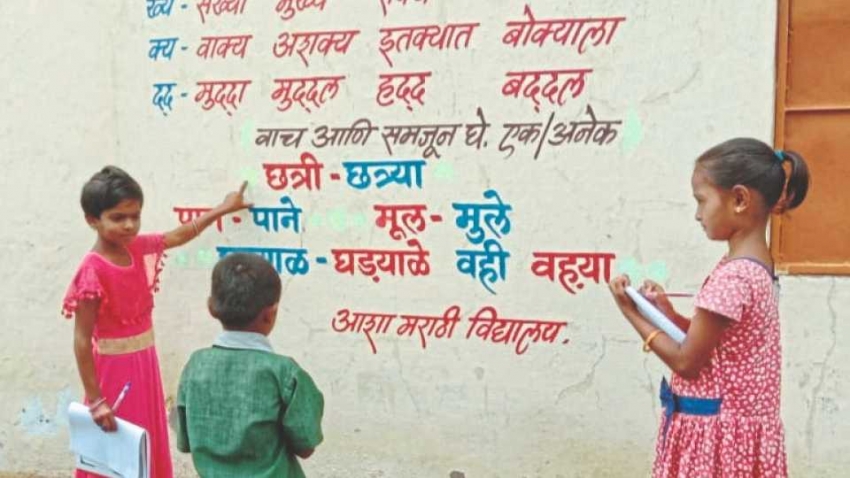 ख्य - संख्या मुख्य
क्य - वाक्य अशक्य इतक्यात बोक्याला
द्द - मुद्दा मुद्दल हद्द बद्दल
(वाच आणि समजून घे. एक/अनेक)
छत्री - छत्र्या
पाने मूल - मुले
घड्याळे वही वह्या
आशा मराठी विद्यालय.